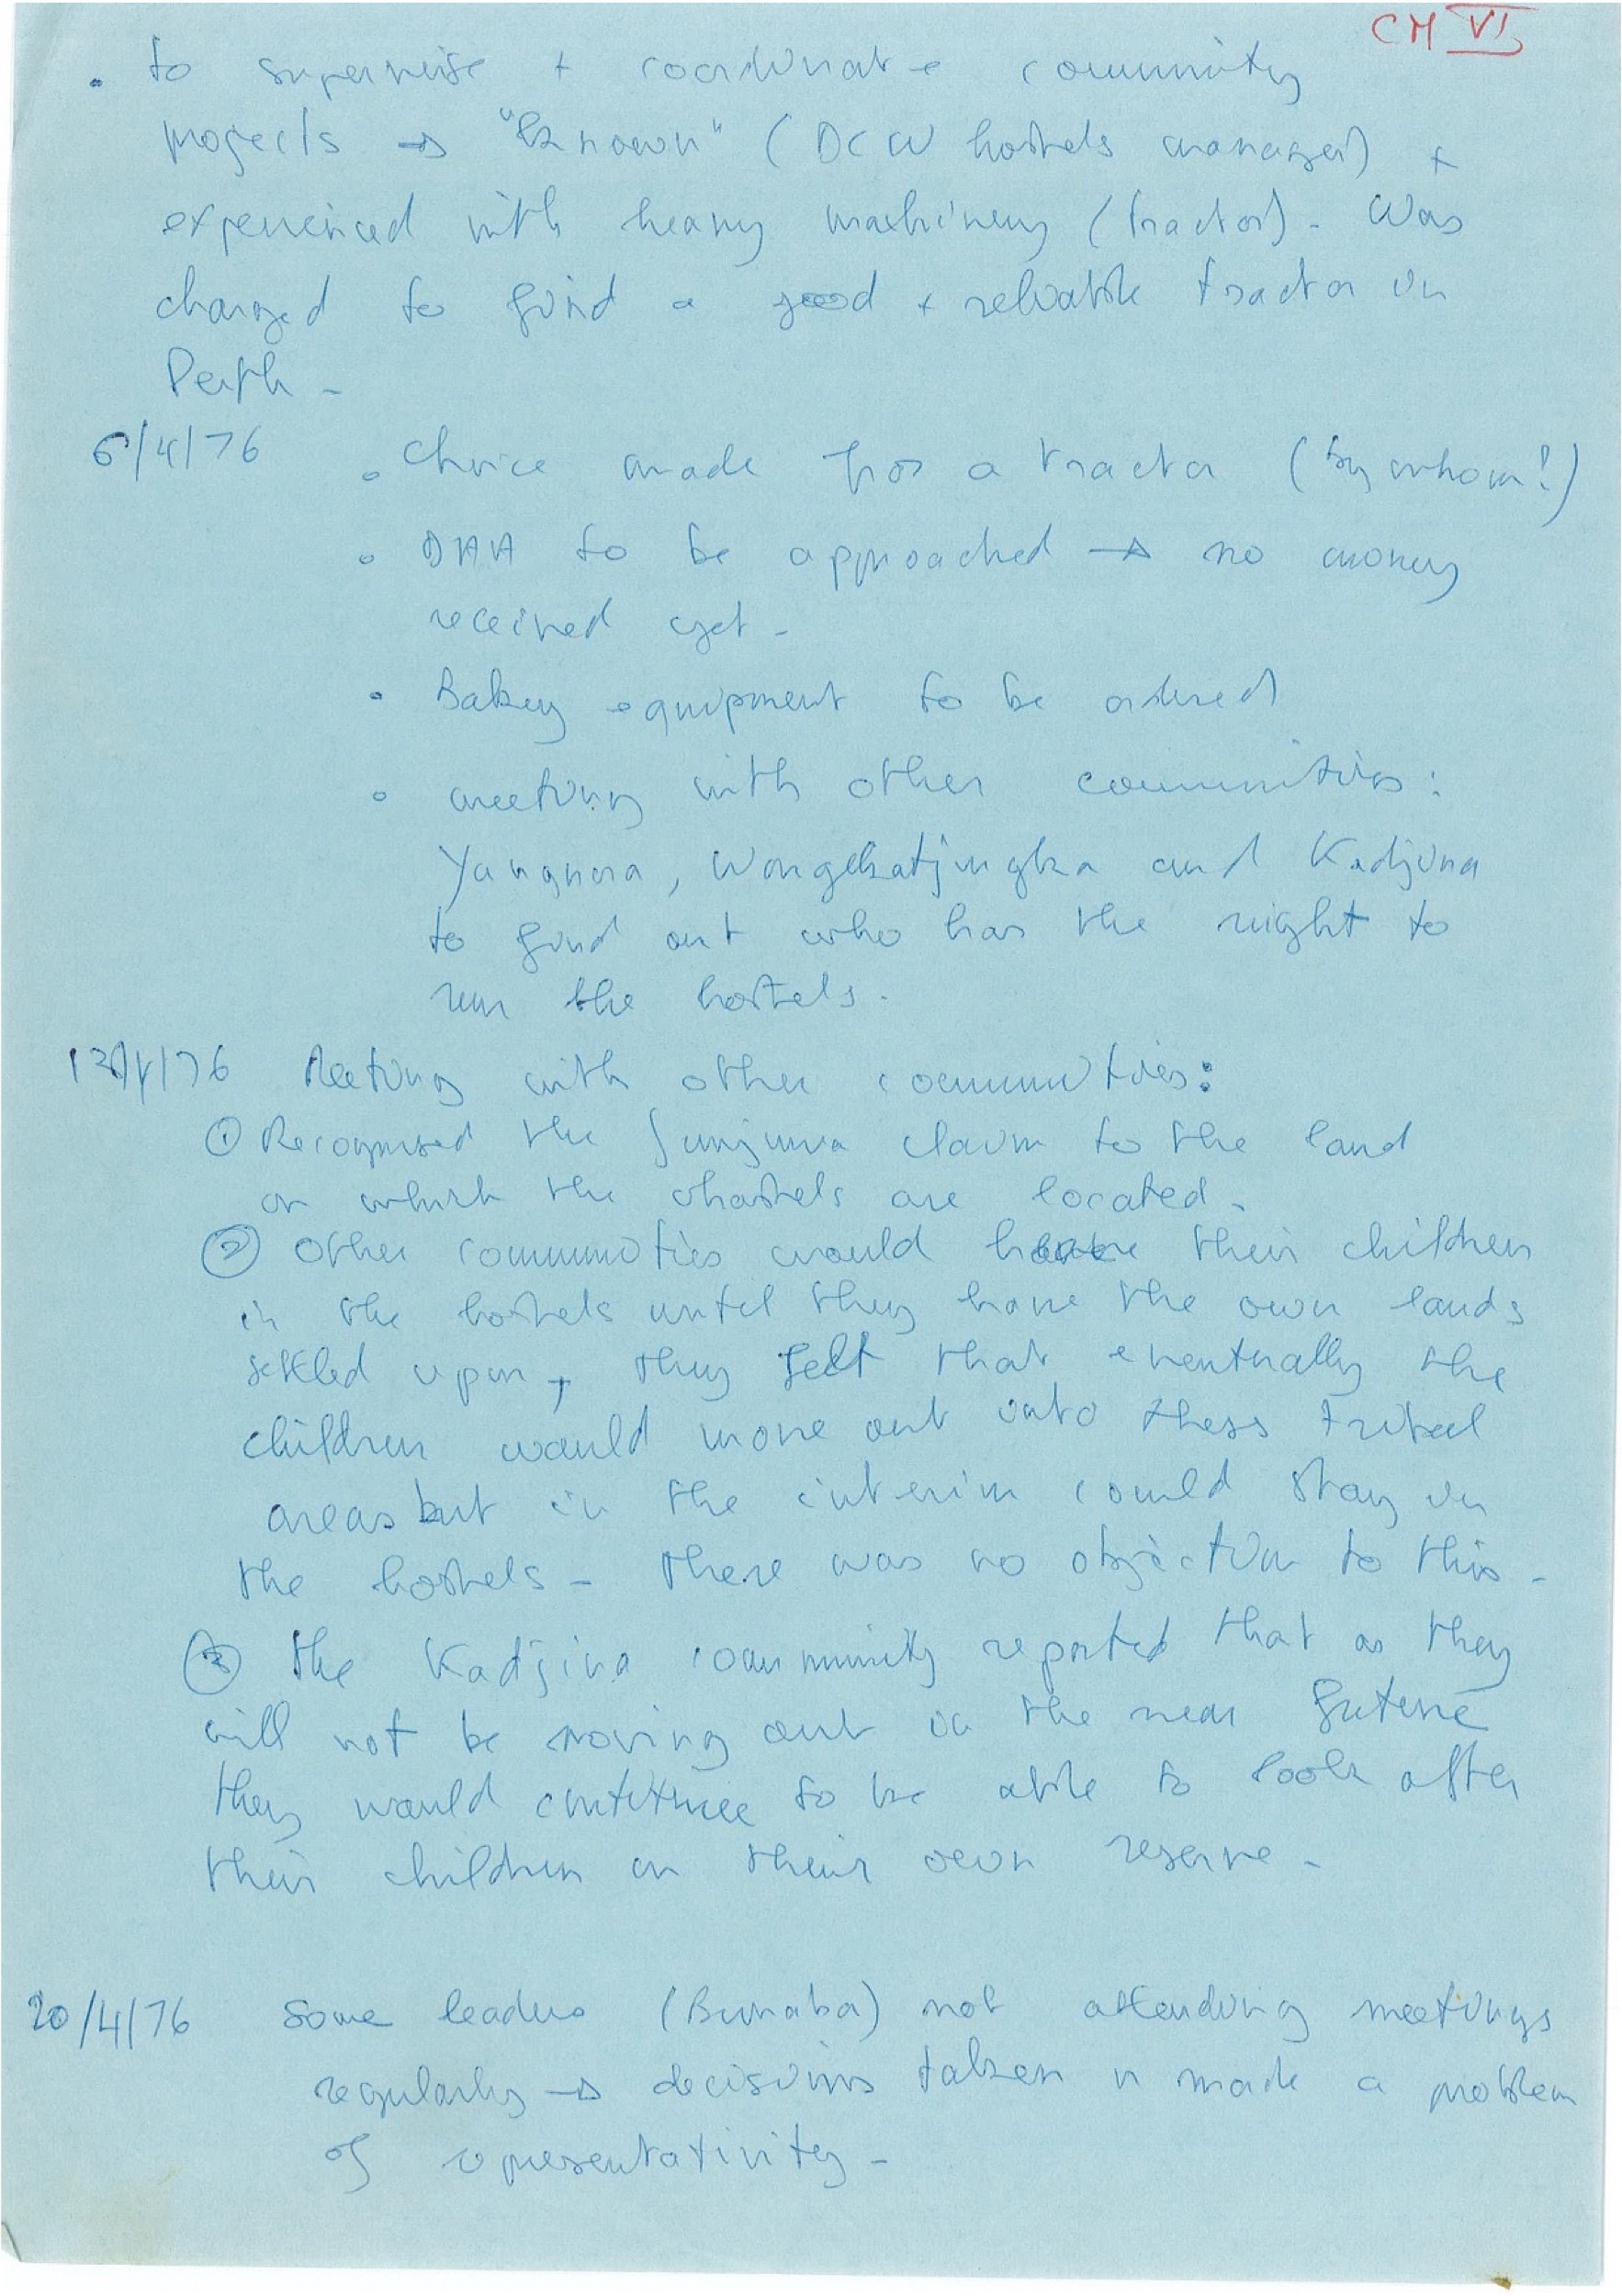 CM VI
• to supervise + coordinate community
projects → "known" (DCW hostels manager) +
experienced with heavy machinery (tractor) - Was
charged to find a good + reliable tractor in
Perth -
6/4/76 • choice made for a tractor (by whom!)
• DAA to be approached → no money
received yet -
• Bakery equipment to be ordered
• meeting with other communities:
Yangnara, Wangkatjungka and Kadjina
to find out who has the right to
run the hostels.
13/4/76 Meeting with other communities:
① Recognised the Junjuwa claim to the land
on which the hostels are located -
② Other communities would have their children
in the hostels until they have the own lands
settled upon, they felt that eventually the
children would move out into thess tribal
areas but in the interim could stay in
the hostels - There was no objection to this -
③ the Kadjina community reported that as they
will not be moving out in the near future
they would continue to be able to look after
their children on their own reserve -
20/4/76 Some leaders (Bunaba) not attending meetings
regularly → decisions taken made a problem
of representativity -